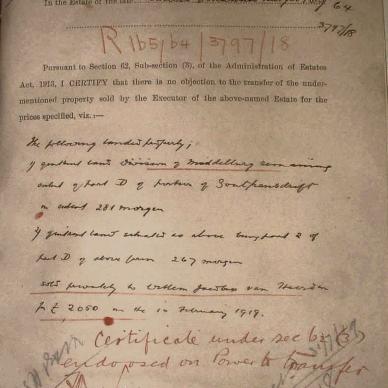 In the Estate of the late
64
3797/18
R 165/64/3797/18
Pursuant to Section 62, Sub-section (3), of the Administration of Estates
Act, 1913, I CERTIFY that there is no objection to the transfer of the under-
mentioned property sold by the Executor of the above-named Estate for the
prices specified, viz.:—
The following landed property;
quitrent land Division of Middelburg remaining
extent of part D of portion of Zoutpansdrift
in extent 281 morgen
quitrent land situated as above being part 2 of
part D of above farm 267 morgen
sold privately to Willem Jacobus van Heerden
for £ 2050 on the 10 February 1919.
Certificate under sec 62 (3)
endorsed on Power to transfer